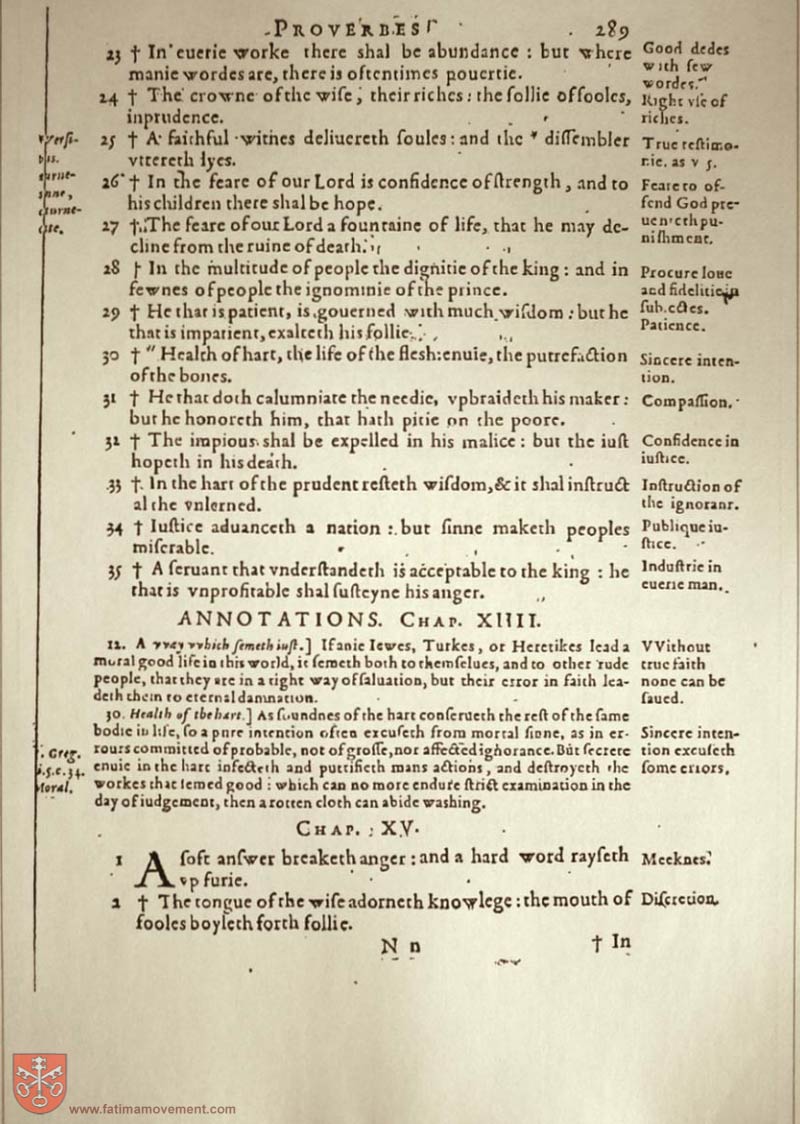 PROVERBES
289
23 † In euerie worke there shal be abundance : but where
manie wordes are, there is oftentimes pouertie.
24 † The crowne of the wise, their riches: the follie of fooles,
inprudence.
25 † A faithful witnes deliuereth soules: and the * dissembler
vttereth lyes.
26 † In the feare of our Lord is confidence of strength, and to
his children there shal be hope.
27 † The feare of our Lord a fountaine of life, that he may de-
cline from the ruine of death.
28 † In the multitude of people the dignitie of the king: and in
fewnes of people the ignominie of the prince.
29 † He that is patient, is gouerned with much wisdom: but he
that is impatient, exalteth his follie.
30 † " Health of hart, the life of the flesh: enuie, the putrefaction
of the bones.
31 † He that doth calumniate the needie, vpbraideth his maker:
but he honoreth him, that hath pitie on the poore.
32 † The impious shal be expelled in his malice: but the iust
hopeth in his death.
33 † In the hart of the prudent resteth wisdom, & it shal instruct
al the vnlerned.
34 † Iustice aduanceth a nation: but sinne maketh peoples
miserable.
35 † A seruant that vnderstandeth is acceptable to the king: he
that is vnprofitable shal susteyne his anger.
Good dedes
with few
wordes.
Right vse of
riches.
True testimo-
nie. as v 5.
Feare to of-
fend God pre-
uenteth pu-
nishment.
Procure loue
and fidelitie in
subiectes.
Patience.
Sincere inten-
tion.
Compassion.
Confidence in
iustice.
Instruction of
the ignorant.
Publique iu-
stice.
Industrie in
euerie man.
ANNOTATIONS. CHAP. XIIII.
12. A vvay vvhich semeth iust.] If anie Iewes, Turkes, or Heretikes lead a
moral good life in this world, it semeth both to themselues, and to other rude
people, that they are in a right way of saluation, but their error in faith lea-
deth them to eternal damnation.
VVithout
true faith
none can be
saued.
30. Health of the hart.] As soundnes of the hart conserueth the rest of the same
bodie in life, so a pure intention often excuseth from mortal sinne, as in er-
rours committed of probable, not of grosse, nor affected ignorance. But secrete
enuie in the hart infecteth and puttifieth mans actions, and destroyeth the
workes that semed good: which can no more endure strict examination in the
day of iudgement, then a rotten cloth can abide washing.
Sincere inten-
tion excuseth
some errors.
Greg.
c. 34.
CHAP. XV.
1 A soft answer breaketh anger: and a hard word rayseth
vp furie.
2 † The tongue of the wise adorneth knowlege: the mouth of
fooles boyleth forth follie.
Meeknes.
Discretion.
N n
† In
www.fatimamovement.com